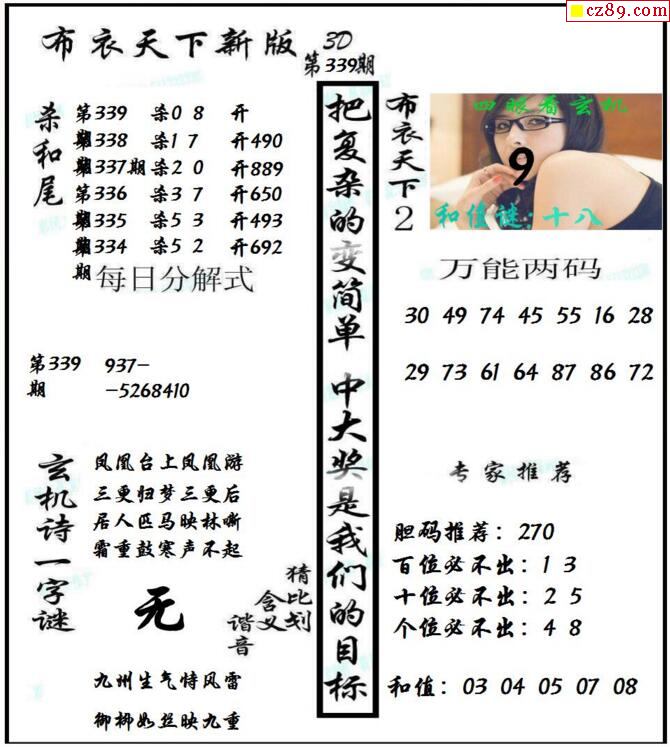 cz89.com
布衣天下新版 3D
第339期
杀和尾
第339期 杀0 8 开
第338期 杀1 7 开490
第337期 杀2 0 开889
第336期 杀3 7 开650
第335期 杀5 3 开493
第334期 杀5 2 开692
每日分解式
第339期 937-
-5268410
玄机诗一字谜
凤凰台上凤凰游
三更归梦三更后
居人匹马映林嘶
霜重鼓寒声不起
无
猜比划
含义
谐音
九州生气恃风雷
御柳如丝映九重
把复杂的变简单 中大奖是我们的目标
布衣天下2
四眼看玄机
9
和值谜:十八
万能两码
30 49 74 45 55 16 28
29 73 61 64 87 86 72
专家推荐
胆码推荐:270
百位必不出:1 3
十位必不出:2 5
个位必不出:4 8
和值:03 04 05 07 08